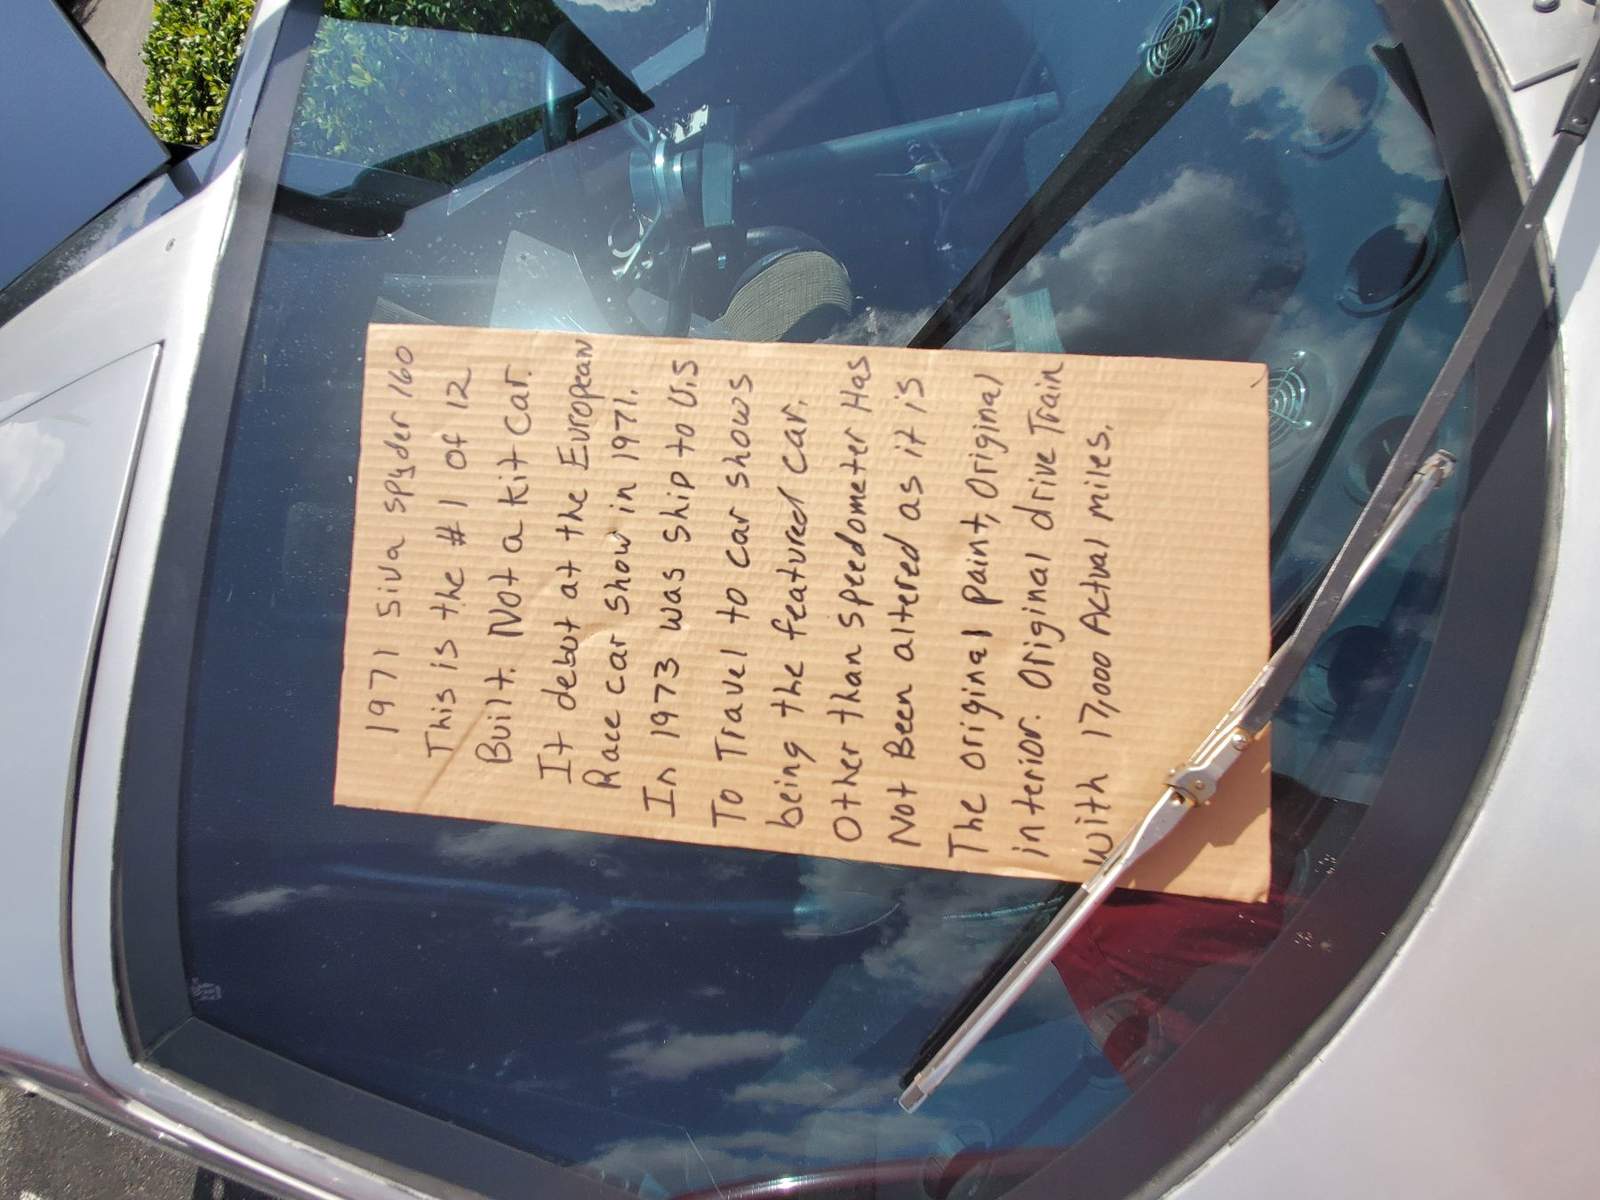 1971 Siva spyder 160
This is the #1 of 12
Built. Not a kit car.
It debut at the European
Race car show in 1971.
In 1973 was ship to U.S
To Travel to car shows
being the featured car.
Other than speedometer Has
Not Been altered as it is
The original paint, original
interior. Original drive Train
With 17,000 Actual miles.